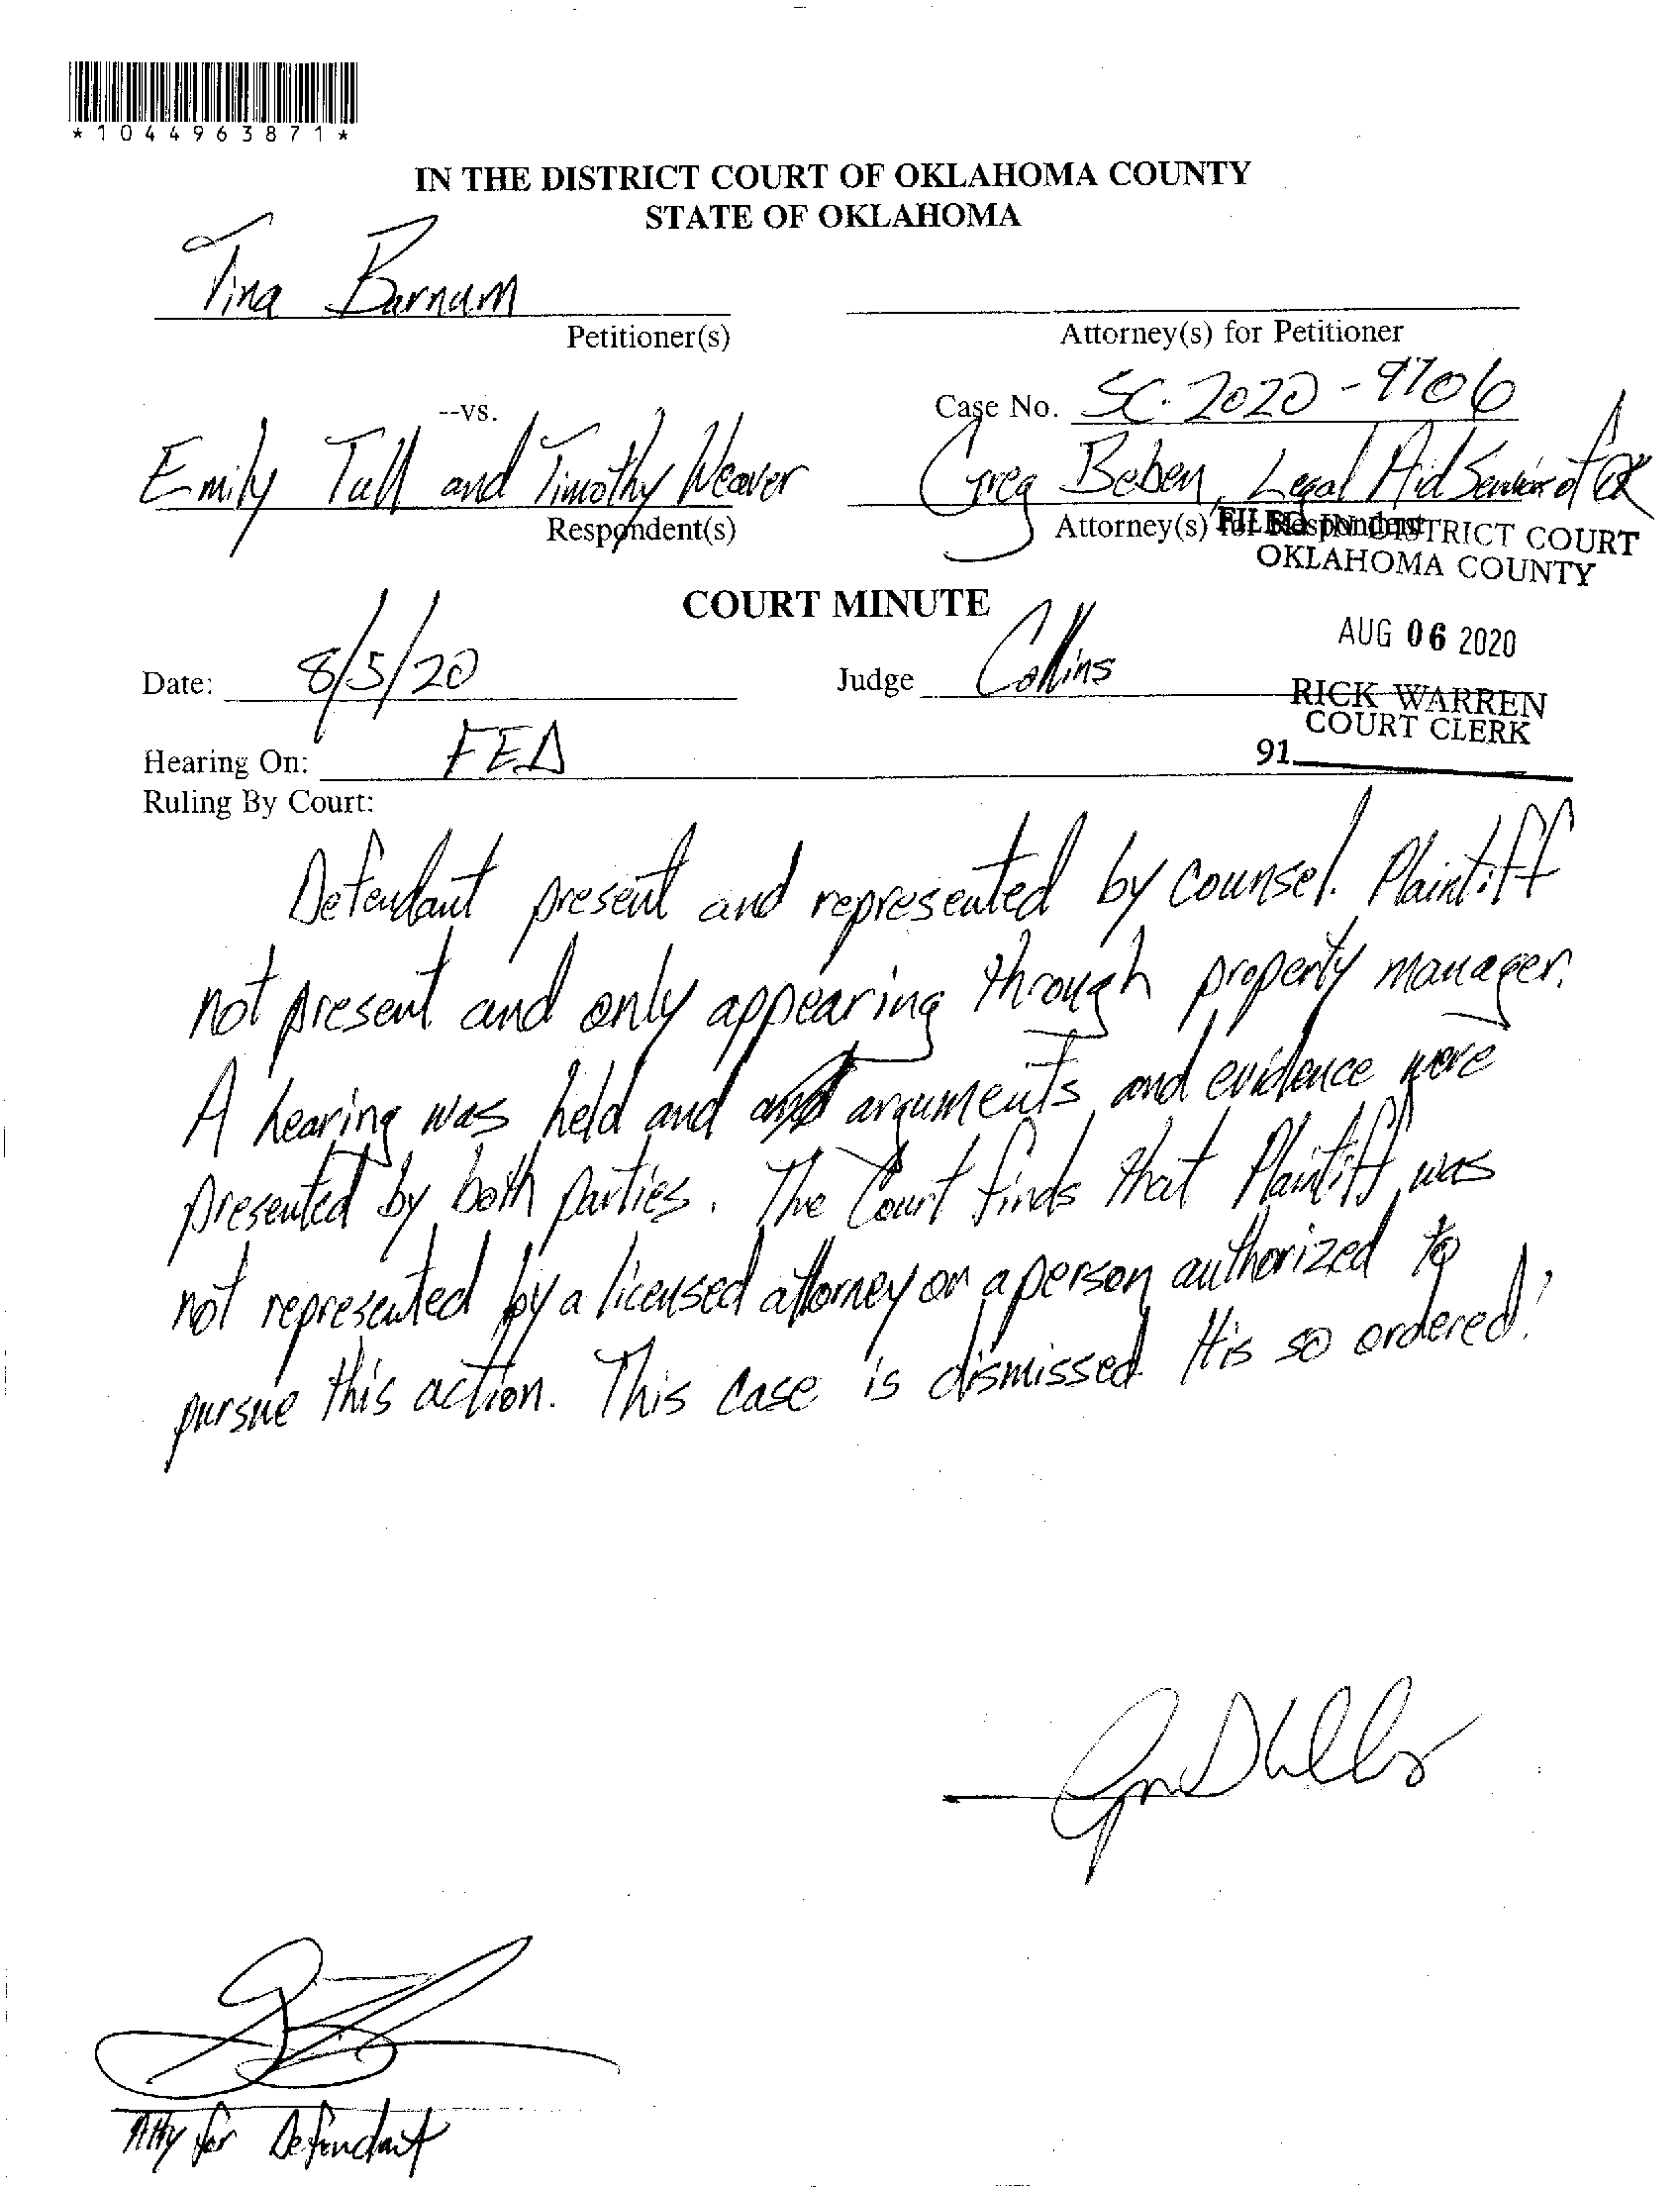 *1044963871*
IN THE DISTRICT COURT OF OKLAHOMA COUNTY
STATE OF OKLAHOMA
Tina Barnum
Petitioner(s)
Attorney(s) for Petitioner
--vs.
Case No. SC-2020-9706
Emily Tull and Timothy Weaver
Respondent(s)
Greg Beben, Legal Aid Services of OK
Attorney(s) for Respondent
FILED IN DISTRICT COURT
OKLAHOMA COUNTY
COURT MINUTE
AUG 06 2020
Date: 8/5/20
Judge Collins
RICK WARREN
COURT CLERK
91
Hearing On: FED
Ruling By Court:
Defendant present and represented by counsel. Plaintiff
not present and only appearing through property manager.
A hearing was held and and arguments and evidence were
presented by both parties. The Court finds that Plaintiff was
not represented by a licensed attorney or a person authorized to
pursue this action. This case is dismissed. It is so ordered.
Atty for Defendant